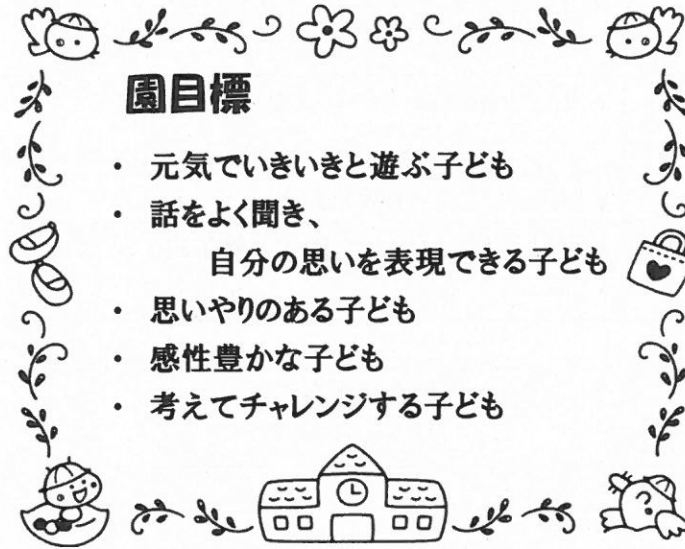 園目標
・ 元気でいきいきと遊ぶ子ども
・ 話をよく聞き、
自分の思いを表現できる子ども
・ 思いやりのある子ども
・ 感性豊かな子ども
・ 考えてチャレンジする子ども